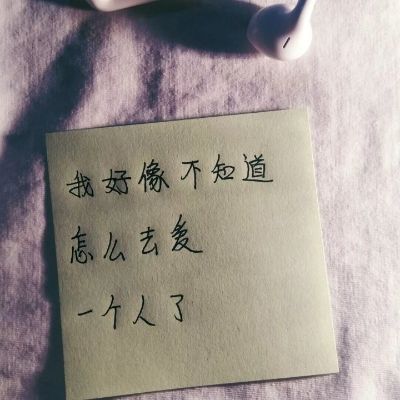 我好像不知道
怎么去爱
一个人了